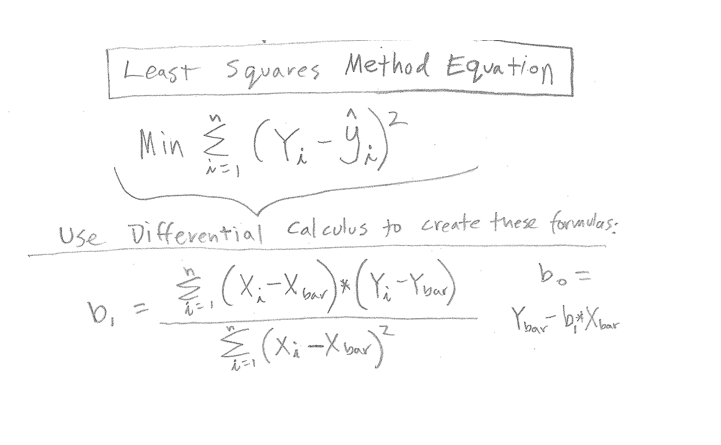 Least Squares Method Equation
Min n Σ i=1 (Yi - ŷi)2
Use Differential Calculus to create these formulas:
b1 = n Σ i=1 (Xi - Xbar) * (Yi - Ybar)
n Σ i=1 (Xi - Xbar)2
b0 =
Ybar - b1 * Xbar